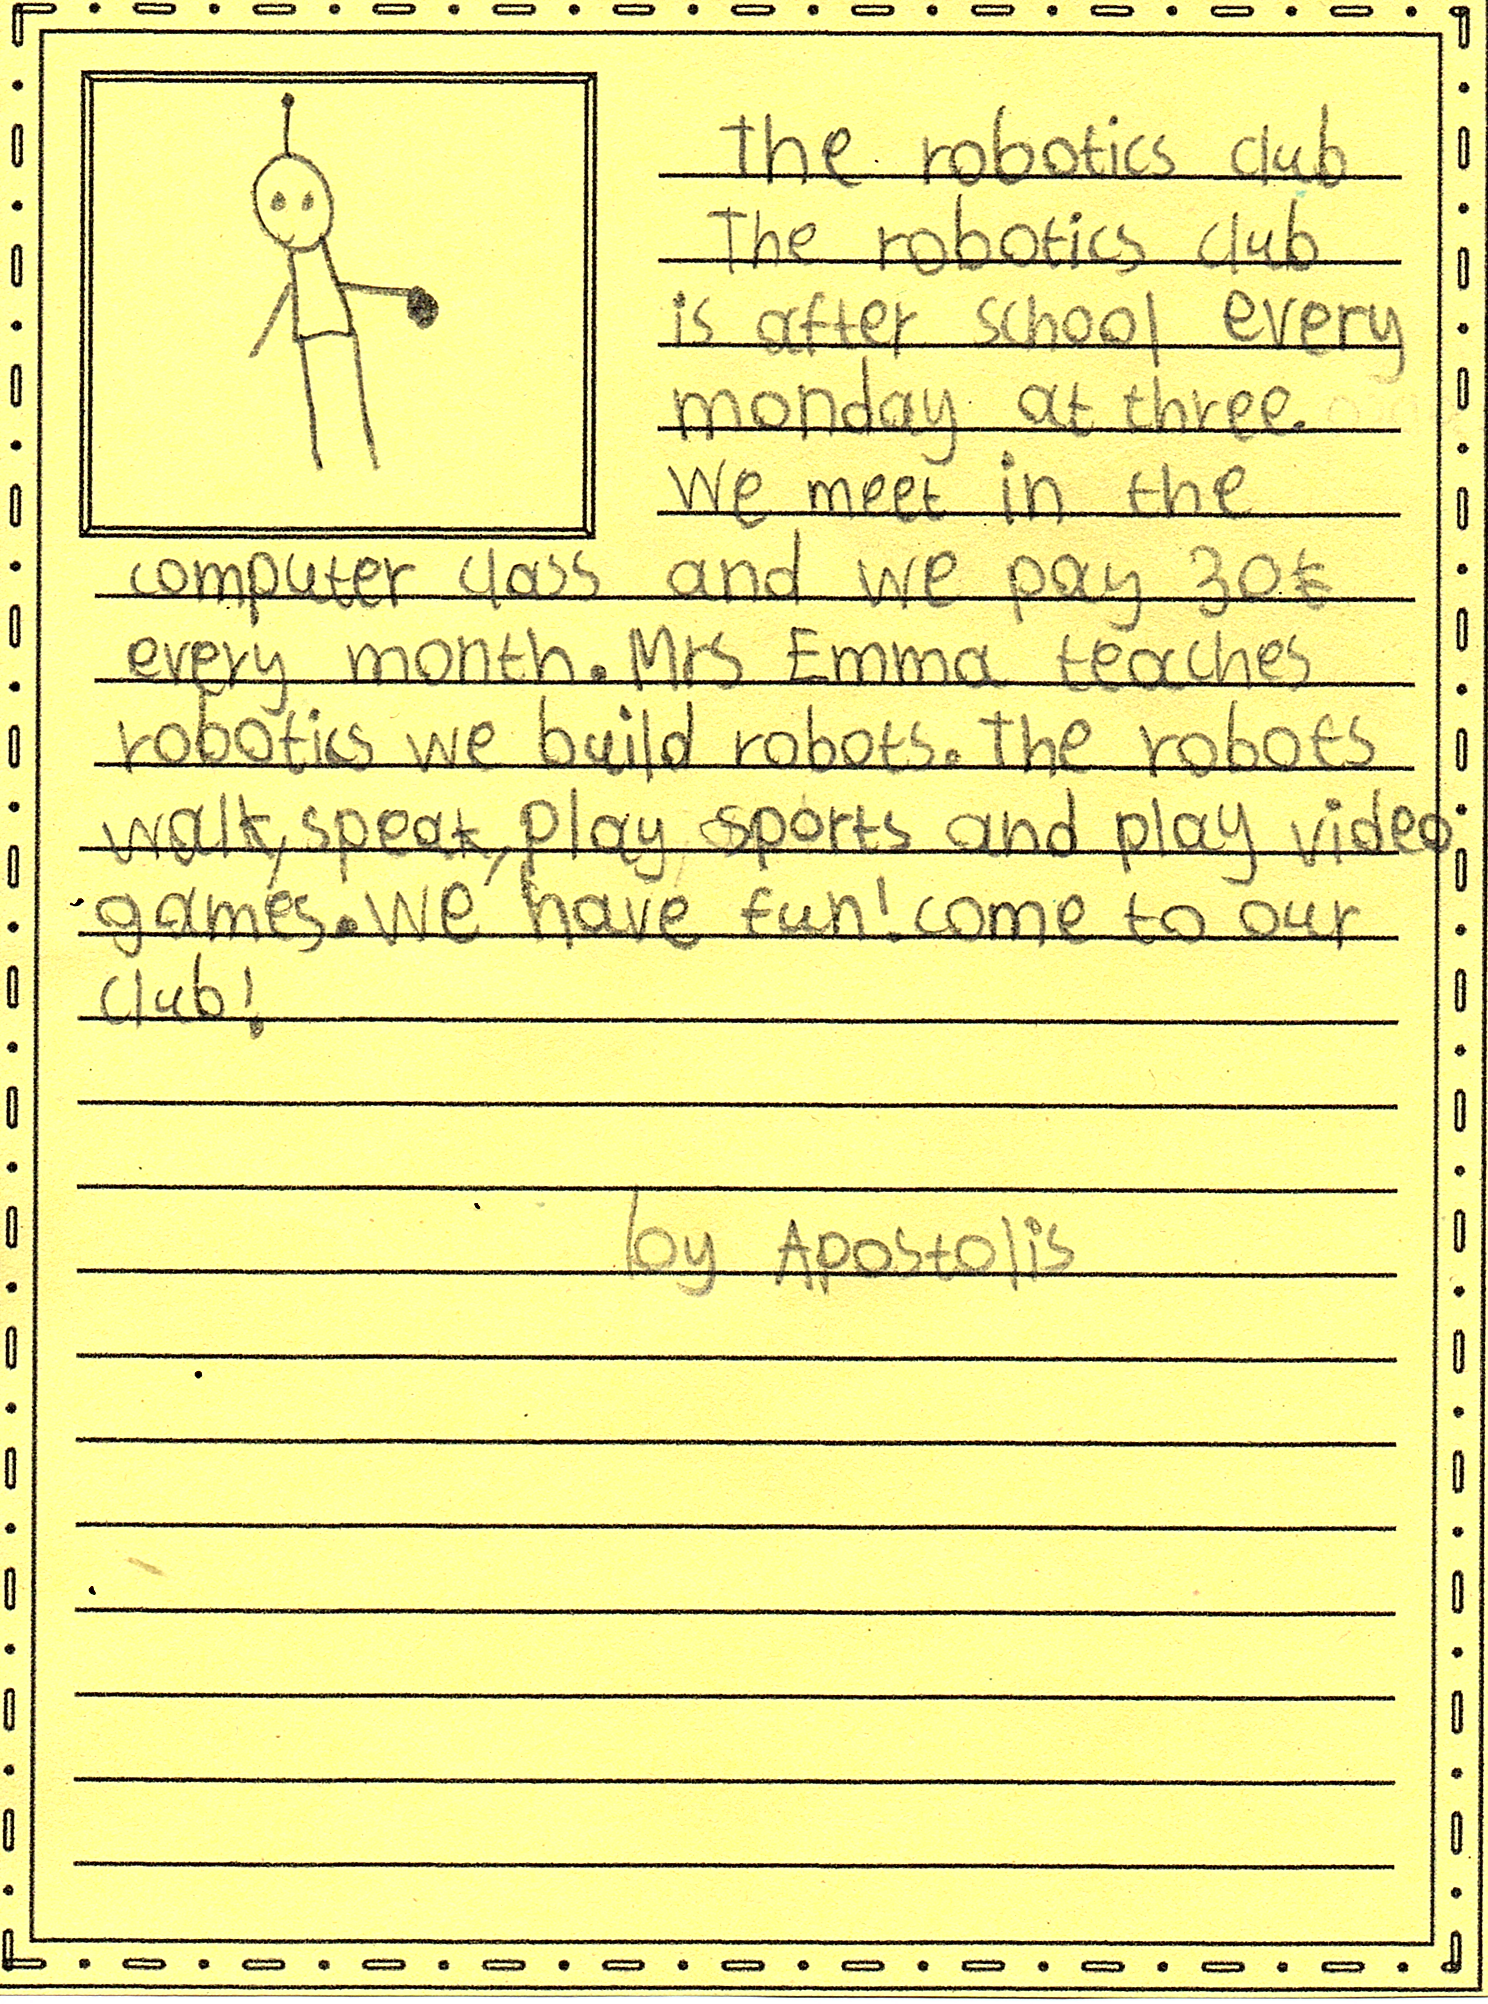 The robotics club
The robotics club
is after school every
monday at three.
We meet in the
computer class and we pay 30€
every month. Mrs Emma teaches
robotics we build robots. The robots
walk, speak, play sports and play video
games. We have fun! come to our
club!
by Apostolis